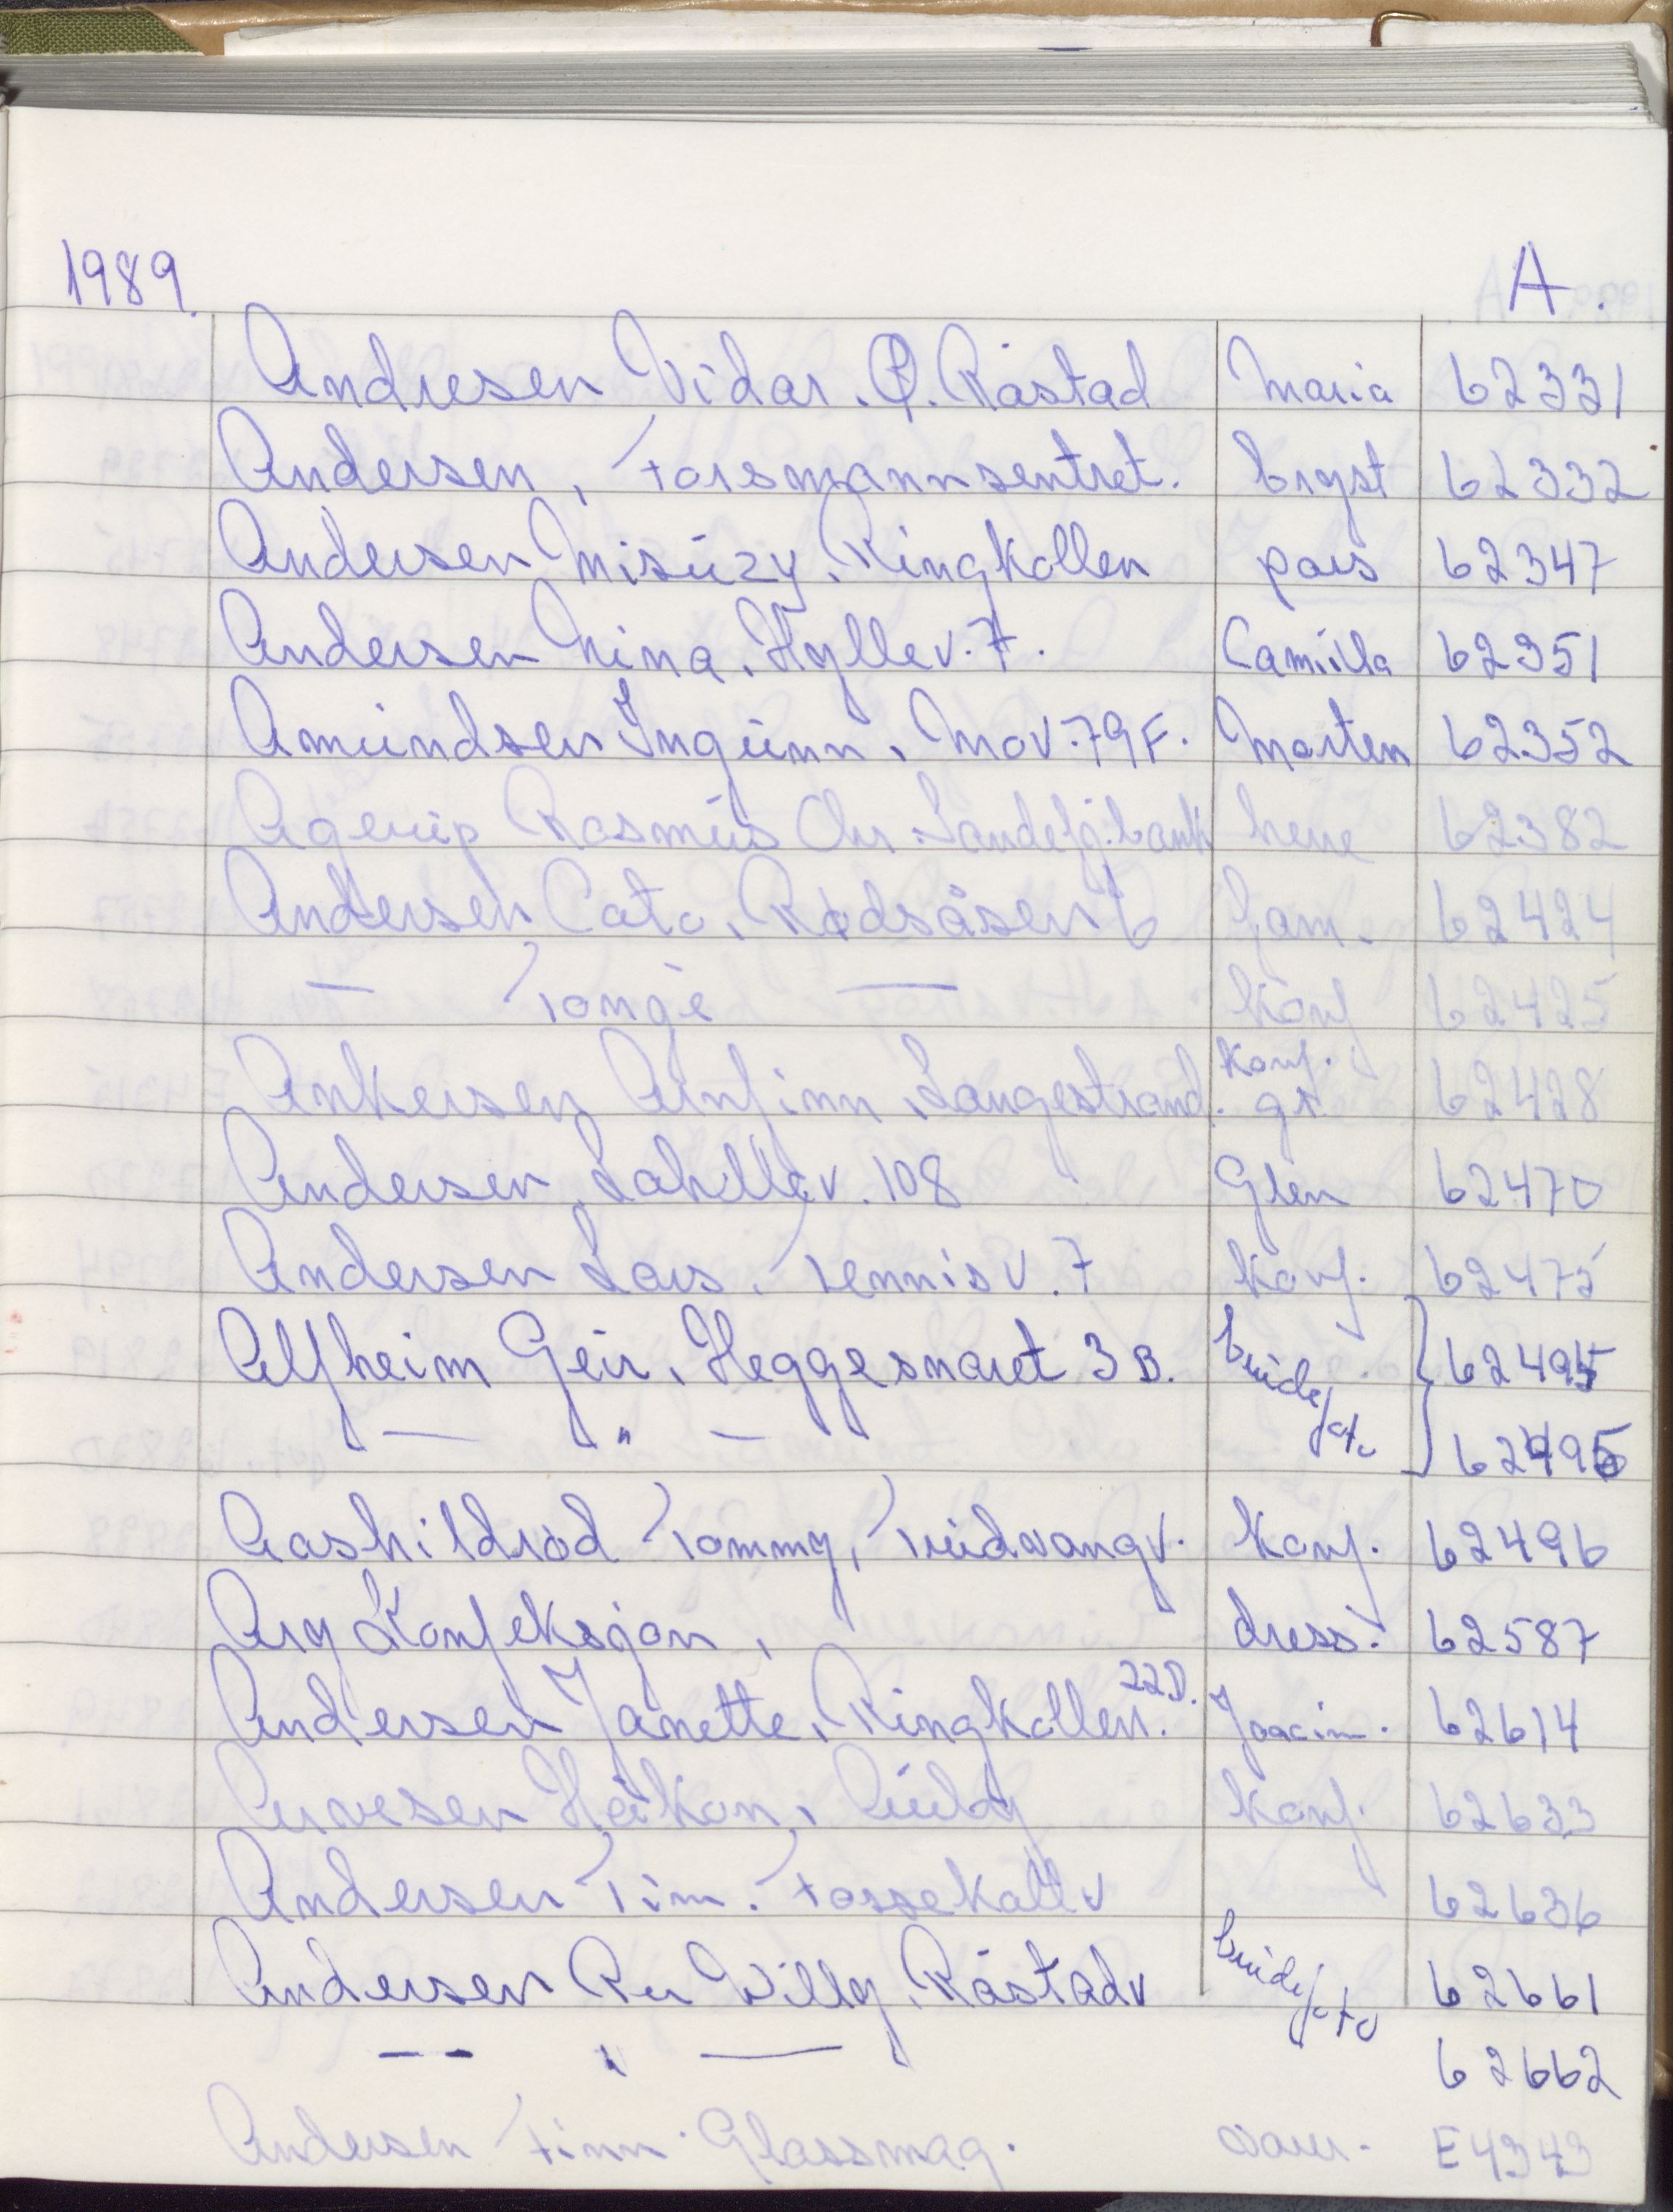 1989. A.
Andresen Vidar. Ø. Råstad Maria 62331
Andersen, Forsmannsentret. bryst 62332
Andersen Misüzy. Ringkollen pass 62347
Andersen Nina. Hyllev. 7. Camilla 62351
Amundsen Ingunn. Mov. 79 F. Morten 62352
Agerup Rasmus Chr. Sandefj. bank herre 62382
Andersen Cato. Rødsåsen 6 fam. 62424
— Tonge — Konf 62425
Ankersen Arnfinn Langestrand. Konf. gr 62428
Andersen, Lahellev. 108 Glen 62470
Andersen Lars. Tennisv. 7 konf. 62475
Alfheim Geir. Heggesnaret 3 B. brude 62494
— " — foto 62495
Aashildrød Tommy, Trudvangv. konf. 62496
Ary Konfeksjon, dress. 62587
Andersen Janette. Ringkollen. 22D. Joacim. 62614
Arvesen Håkon, konf. 62633
Andersen Tim. Fossekallv 62636
Andersen Per Willy. Råstadv brude 62661
-- " — foto 62662
Andersen Finn. Glassmag. E4343